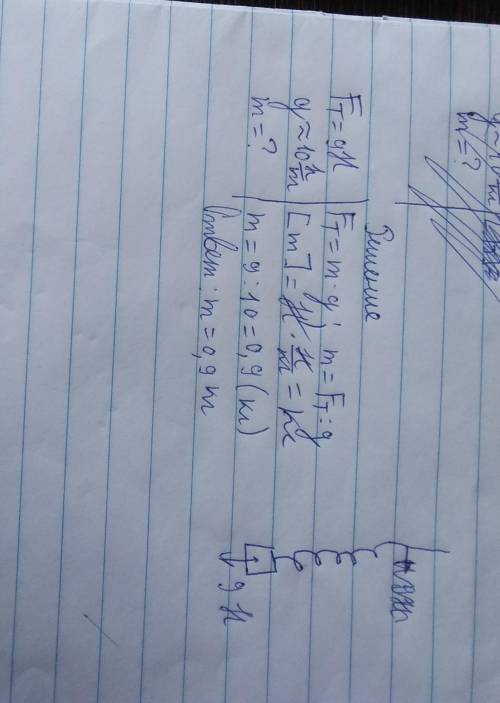 g ≈ 10
m = ?
Решение
Fт = 9Н
g ≈ 10 Н/кг
m = ?
Fт = m · g; m = Fт : g
[m] = Н : Н/кг = кг
m = 9 : 10 = 0,9 (кг)
Ответ: m = 0,9 кг
9 Н